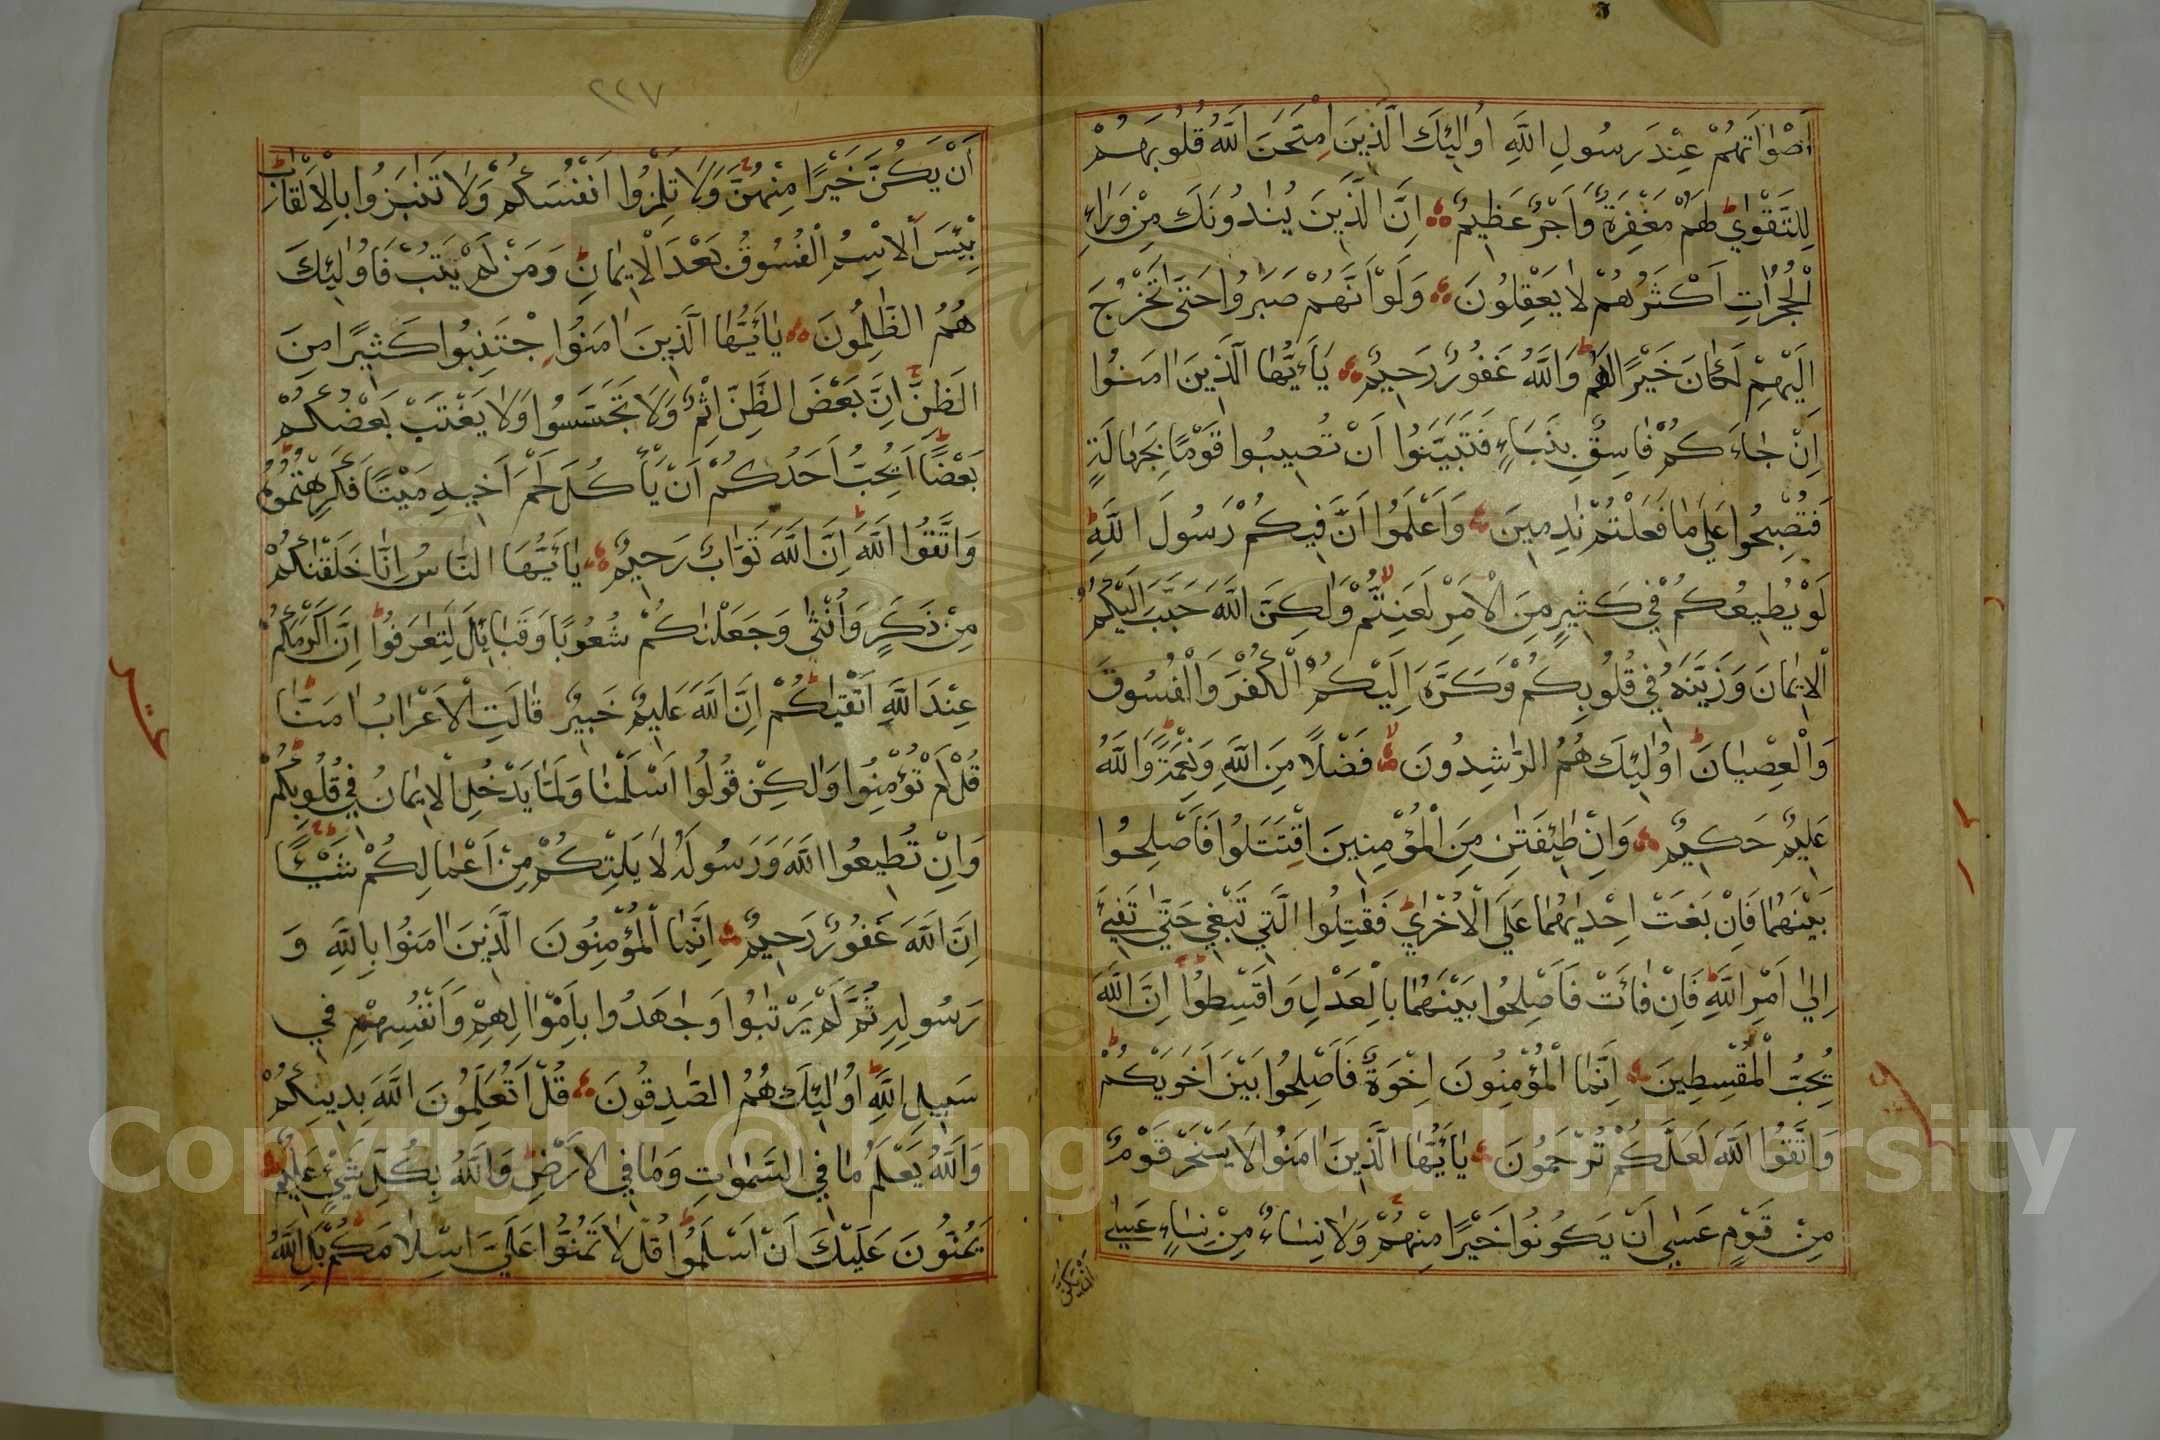 اَصْوَاتَهُمْ عِنْدَ رَسُولِ اللَّهِ اُولٰئِكَ الَّذِينَ امْتَحَنَ اللَّهُ قُلُوبَهُمْ
لِلتَّقْوٰي لَهُمْ مَغْفِرَةٌ وَاَجْرٌ عَظِيمٌ اِنَّ الَّذِينَ يُنَادُونَكَ مِنْ وَرَاءِ
الْحُجُرَاتِ اَكْثَرُهُمْ لَا يَعْقِلُونَ وَلَوْ اَنَّهُمْ صَبَرُوا حَتّٰى تَخْرُجَ
اِلَيْهِمْ لَكَانَ خَيْرًا لَهُمْ وَاللَّهُ غَفُورٌ رَحِيمٌ يَاَيُّهَا الَّذِينَ اٰمَنُوا
اِنْ جَاءَكُمْ فَاسِقٌ بِنَبَاءٍ فَتَبَيَّنُوا اَنْ تُصِيبُوا قَوْمًا بِجَهَالَةٍ
فَتُصْبِحُوا عَلٰي مَا فَعَلْتُمْ نٰدِمِينَ وَاعْلَمُوا اَنَّ فِيكُمْ رَسُولَ اللَّهِ
لَوْ يُطِيعُكُمْ فِي كَثِيرٍ مِنَ الْاَمْرِ لَعَنِتُّمْ وَلٰكِنَّ اللَّهَ حَبَّبَ اِلَيْكُمُ
الْاِيمَانَ وَزَيَّنَهُ فِي قُلُوبِكُمْ وَكَرَّهَ اِلَيْكُمُ الْكُفْرَ وَالْفُسُوقَ
وَالْعِصْيَانَ اُولٰئِكَ هُمُ الرَّاشِدُونَ فَضْلًا مِنَ اللَّهِ وَنِعْمَةً وَاللَّهُ
عَلِيمٌ حَكِيمٌ وَاِنْ طَائِفَتٰنِ مِنَ الْمُؤْمِنِينَ اقْتَتَلُوا فَاَصْلِحُوا
بَيْنَهُمَا فَاِنْ بَغَتْ اِحْدٰيهُمَا عَلَي الْاُخْرٰي فَقَاتِلُوا الَّتِي تَبْغِي حَتّٰي تَفِيءَ
اِلٰي اَمْرِ اللَّهِ فَاِنْ فَائَتْ فَاَصْلِحُوا بَيْنَهُمَا بِالْعَدْلِ وَاَقْسِطُوا اِنَّ اللَّهَ
يُحِبُّ الْمُقْسِطِينَ اِنَّمَا الْمُؤْمِنُونَ اِخْوَةٌ فَاَصْلِحُوا بَيْنَ اَخَوَيْكُمْ
وَاتَّقُوا اللَّهَ لَعَلَّكُمْ تُرْحَمُونَ يٰاَيُّهَا الَّذِينَ اٰمَنُوا لَا يَسْخَرْ قَوْمٌ
مِنْ قَوْمٍ عَسٰي اَنْ يَكُونُوا خَيْرًا مِنْهُمْ وَلَا نِسَاءٌ مِنْ نِسَاءٍ عَسٰي
اَنْ يَكُنَّ
٢٢٧
اَنْ يَكُنَّ خَيْرًا مِنْهُنَّ وَلَا تَلْمِزُوا اَنْفُسَكُمْ وَلَا تَنَابَزُوا بِالْاَلْقَابِ
بِئْسَ الْاِسْمُ الْفُسُوقُ بَعْدَ الْاِيمَانِ وَمَنْ لَمْ يَتُبْ فَاُولٰئِكَ
هُمُ الظَّالِمُونَ يٰاَيُّهَا الَّذِينَ اٰمَنُوا اجْتَنِبُوا كَثِيرًا مِنَ
الظَّنِّ اِنَّ بَعْضَ الظَّنِّ اِثْمٌ وَلَا تَجَسَّسُوا وَلَا يَغْتَبْ بَعْضُكُمْ
بَعْضًا اَيُحِبُّ اَحَدُكُمْ اَنْ يَأْكُلَ لَحْمَ اَخِيهِ مَيْتًا فَكَرِهْتُمُوهُ
وَاتَّقُوا اللَّهَ اِنَّ اللَّهَ تَوَّابٌ رَحِيمٌ يٰاَيُّهَا النَّاسُ اِنَّا خَلَقْنٰكُمْ
مِنْ ذَكَرٍ وَاُنْثٰي وَجَعَلْنٰكُمْ شُعُوبًا وَقَبَائِلَ لِتَعَارَفُوا اِنَّ اَكْرَمَكُمْ
عِنْدَ اللَّهِ اَتْقٰيكُمْ اِنَّ اللَّهَ عَلِيمٌ خَبِيرٌ قَالَتِ الْاَعْرَابُ اٰمَنَّا
قُلْ لَمْ تُؤْمِنُوا وَلٰكِنْ قُولُوا اَسْلَمْنَا وَلَمَّا يَدْخُلِ الْاِيمَانُ فِي قُلُوبِكُمْ
وَاِنْ تُطِيعُوا اللَّهَ وَرَسُولَهُ لَا يَلِتْكُمْ مِنْ اَعْمَالِكُمْ شَيْئًا
اِنَّ اللَّهَ غَفُورٌ رَحِيمٌ اِنَّمَا الْمُؤْمِنُونَ الَّذِينَ اٰمَنُوا بِاللَّهِ وَ
رَسُولِهِ ثُمَّ لَمْ يَرْتَابُوا وَجَاهَدُوا بِاَمْوَالِهِمْ وَاَنْفُسِهِمْ فِي
سَبِيلِ اللَّهِ اُولٰئِكَ هُمُ الصَّادِقُونَ قُلْ اَتُعَلِّمُونَ اللَّهَ بِدِينِكُمْ
وَاللَّهُ يَعْلَمُ مَا فِي السَّمٰوَاتِ وَمَا فِي الْاَرْضِ وَاللَّهُ بِكُلِّ شَيْءٍ عَلِيمٌ
يَمُنُّونَ عَلَيْكَ اَنْ اَسْلَمُوا قُلْ لَا تَمُنُّوا عَلَيَّ اِسْلَامَكُمْ بَلِ اللَّهُ
Copyright © King Saud University